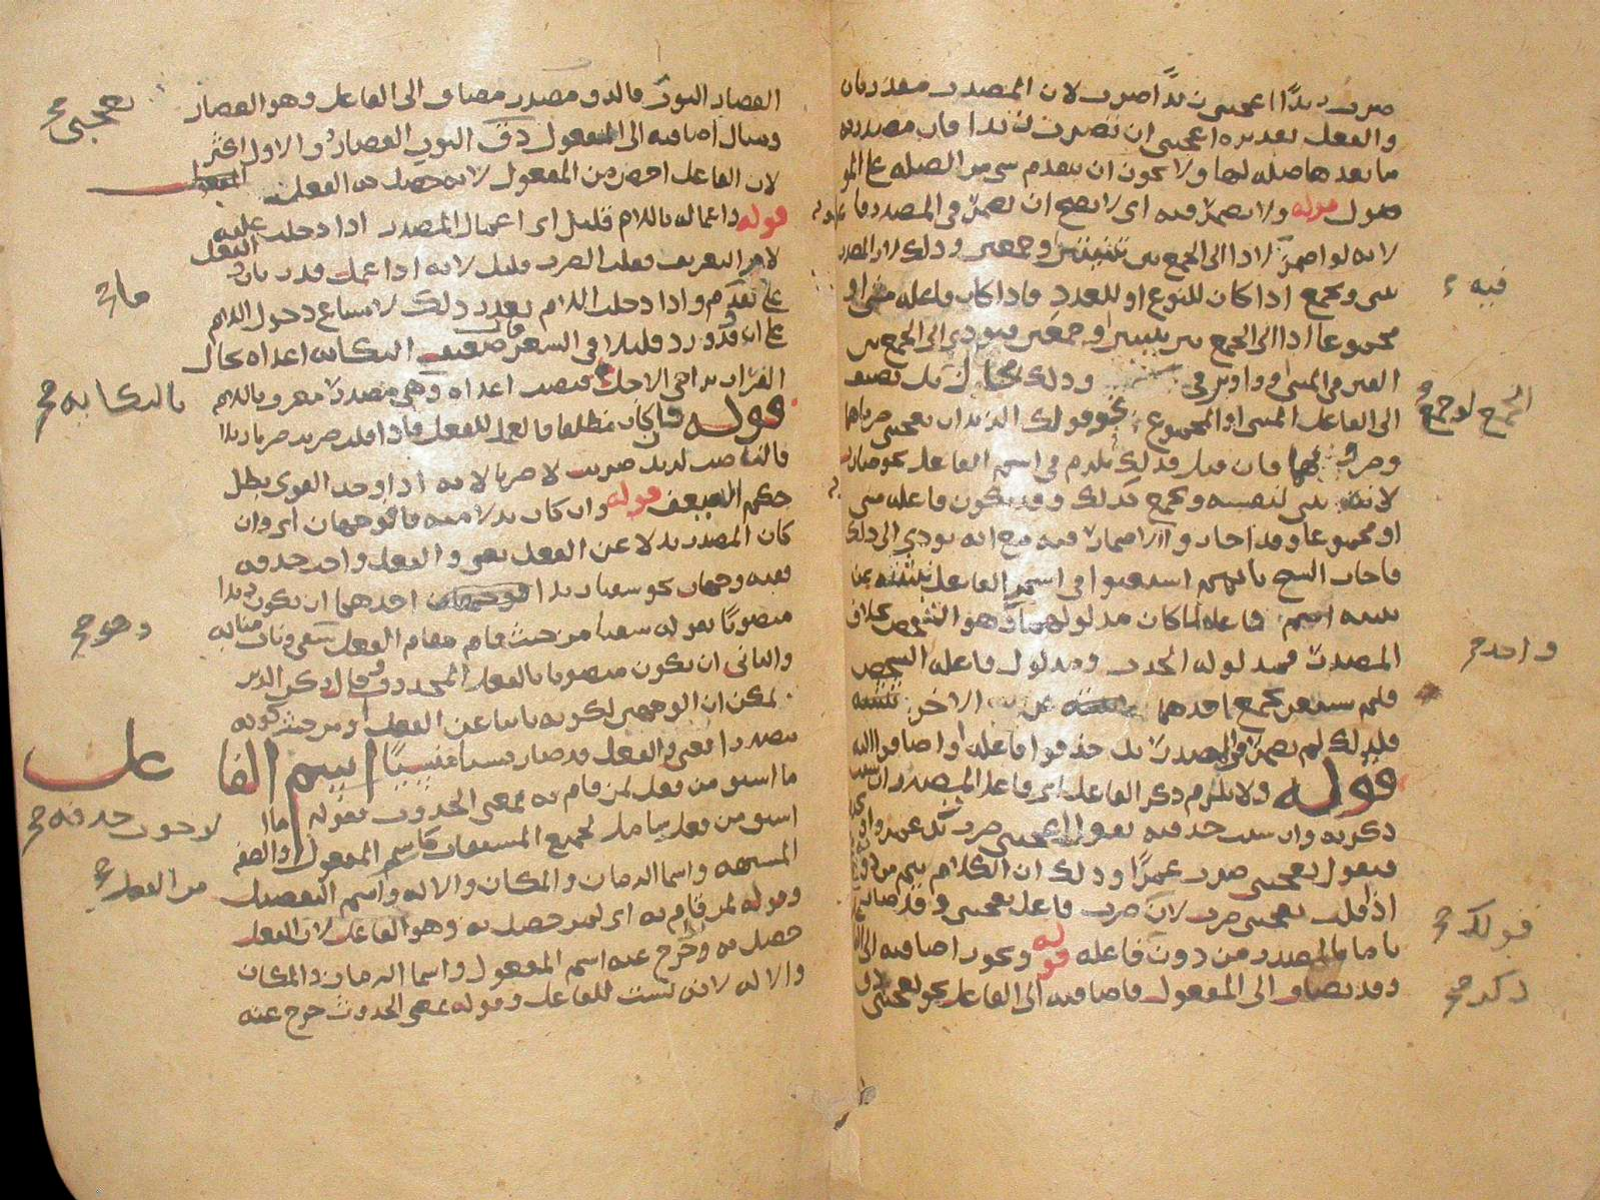 ضرب زيدا اعجبنى زيدا ضرب لان المصدر مقدر بان
والفعل تقديره اعجبنى ان تضرب زيدا فان مصدرية
ما بعدها صله لها ولا يجوز ان يتقدم شى من الصله على المو
صول قوله ولا يضمر فيه اى لا يصح ان يضمر فى المصدر فاعله
لانه لو اضمر لادا الى الجمع بين تثنيتين او جمعين وذلك لان المصدر
يثنى ويجمع اذا كان للنوع او للعدد فاذا كان فاعله مثنى او
مجموعا ادا الى الجمع بين تثنيتين او جمعين فيودي الى الجمع بين
الفين فى المثنى وواوين فى وذلك محال بل يضيف
الى الفاعل المثنى او المجموع نحو قولك الزيدان يعجبنى ضرباهما
وضربهما فان قيل فذلك يلزم فى اسم الفاعل نحو ضارب
لانه يثنى لنفسه ويجمع كذلك وقد يكون فاعله مثنى
او مجموعا وقد اجازوا الاضمار فيه مع انه يودي الى ذلك
فاجاب الشيخ بانهم استغنوا فى اسم الفاعل بتثنيته عن
تثنيه فاعله لما كان مدلولهما وهو الشخص بخلاف
المصدر فمدلوله الحدث ومدلول فاعله الشخص
فلم يستغن بجمع احدهما عن الاخر تثنيته
فلذلك لم يضمر فى المصدر بل حذفوا فاعله او اضافوا اليه
قوله ولا يلزم ذكر الفاعل اى فاعل المصدر ان شئت
ذكرته وان شئت حذفته تقول اعجبنى ضرب زيد عمرا وان
فيقول يعجبنى ضرب عمرا وذلك ان الكلام يتم من دونه
اذا قلت يعجبنى ضرب لان ضرب فاعل يعجبنى وقد صار
تاما بالمصدر من دون فاعله قوله ويجوز اضافته الى
وقد يضاف الى المفعول فاضافته الى الفاعل نحو يعجبنى دق
فيه
الجمع لو جمع
واحد صح
قولك صح
ذكر صح
القصار الثوب فالدق مصدر مضاف الى الفاعل وهو القصار
ومثال اضافته الى المفعول دق الثوب القصار والاول اكثر
لان الفاعل اخص من المفعول لانه حصل منه الفعل
قوله واعماله باللام قليل اى اعمال المصدر اذا دخلت عليه
لام التعريف فعلت الضرب قليل لانه اذا عمل قدر بان والفعل
على ما تقدم واذا دخلت اللام تعذر ذلك لامتناع دخول اللام
على ان وقد ورد قليلا فى الشعر قال ضعيف النكايه اعداه يخال
الفرار يراخى الاجل فنصب اعداه وهى مصدر معرف باللام
قوله فان كان مطلقا فالعمل للفعل فاذا قلت ضربت ضربا زيدا
فالناصب لزيد ضربت لا ضربا لانه اذا وجد القوي بطل
حكم الضعيف قوله وان كان بدلا منه فالوجهان اى وان
كان المصدر بدلا عن الفعل يعنى والفعل واجب حذفه
ففيه وجهان نحو سقيا زيدا احدهما ان يكون زيدا
منصوبا بقوله سقيا من حيث قام مقام الفعل سقى وناب منابه
والثانى ان يكون منصوبا بالفعل المحذوف قال ركن الدين
يمكن ان الوجهين لكونه نايبا عن الفعل ومن حيث كونه
مصدرا بمعنى الفعل قد صار نسيا منسيا اسم الفاعل
ما اشتق من فعل لمن قام به بمعنى الحدوث فقوله ما
اشتق من فعل شامل لجميع المشتقات كاسم المفعول والصفه
المشبهه واسما الزمان والمكان والاله واسم التفضيل
وقوله لمن قام به اى لمن حصل به وهو الفاعل لان الفعل
حصل به وخرج عنه اسم المفعول واسما الزمان والمكان
والاله لانه ليست للفاعل وقوله بمعنى الحدوث خرج عنه
يعجبنى صح
مات
بالنكايه صح
وهو صح
لا حدفه صح
من الفعل